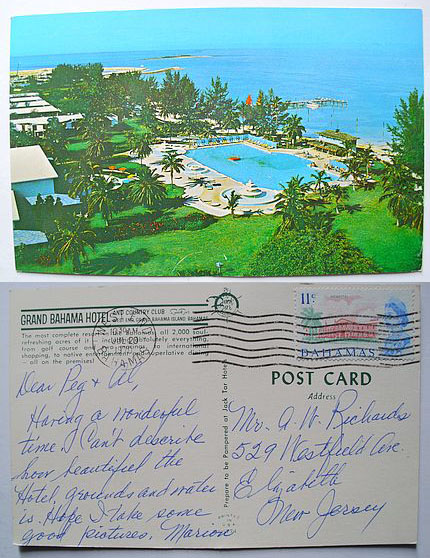 GRAND BAHAMA HOTEL AND COUNTRY CLUB
WEST END, GRAND BAHAMA ISLAND, BAHAMAS
The most complete resort all 2,000 soul-
refreshing acres of it including everything,
from golf course and to international
shopping, to native entertainment superlative dining
— all on the premises!
JUL 20
AM
11c
BAHAMAS
POST CARD
Address
Prepare to be Pampered at Jack Tar Hotels
Dear Peg + Al,
Having a wonderful
time. I Can't describe
how beautiful the
Hotel, grounds and water
is. Hope I take some
good pictures. Marion
Mr. A. W. Richards
529 Westfield Ave.
Elizabeth
New Jersey